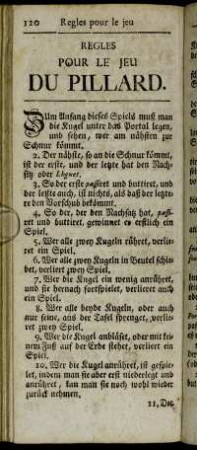 120 Regles pour le jeu
REGLES
POUR LE JEU
DU PILLARD.
Zum Anfang dieses Spiels muß man
die Kugel unter das Portal legen,
und sehen, wer am nähsten zur
Schnur kömmt.
2. Der nähste, so an die Schnur kömmt,
ist der erste, und der letzte hat den Nach-
sitz oder
3. So der erste passiret und buttiret, und
der letzte auch, ist nichts, als daß der letzte-
re den Vorschub bekömmt.
4. So der, der den Nachsitz hat, passi-
ret und buttiret, gewinnet er erstlich ein
Spiel.
5. Wer alle zwey Kugeln rühret, verlie-
ret ein Spiel.
6. Wer alle zwey Kugeln in Beutel schie-
bet, verliert zwey Spiel.
7. Wer die Kugel ein wenig anrühret,
und sie hernach fortspielet, verlieret auch
ein Spiel.
8. Wer alle beyde Kugeln, oder auch
nur seine, aus der Tafel sprenget, verlie-
ret zwey Spiel.
9. Wer die Kugel anbläset, oder mit kei-
nem Fuß auf der Erde stehet, verliert ein
Spiel.
10. Wer die Kugel anrühret, ist gespie-
let, indem man sie aber erst niederlegt und
anrühret, kan man sie noch wohl wieder
zurück nehmen.
11. Der